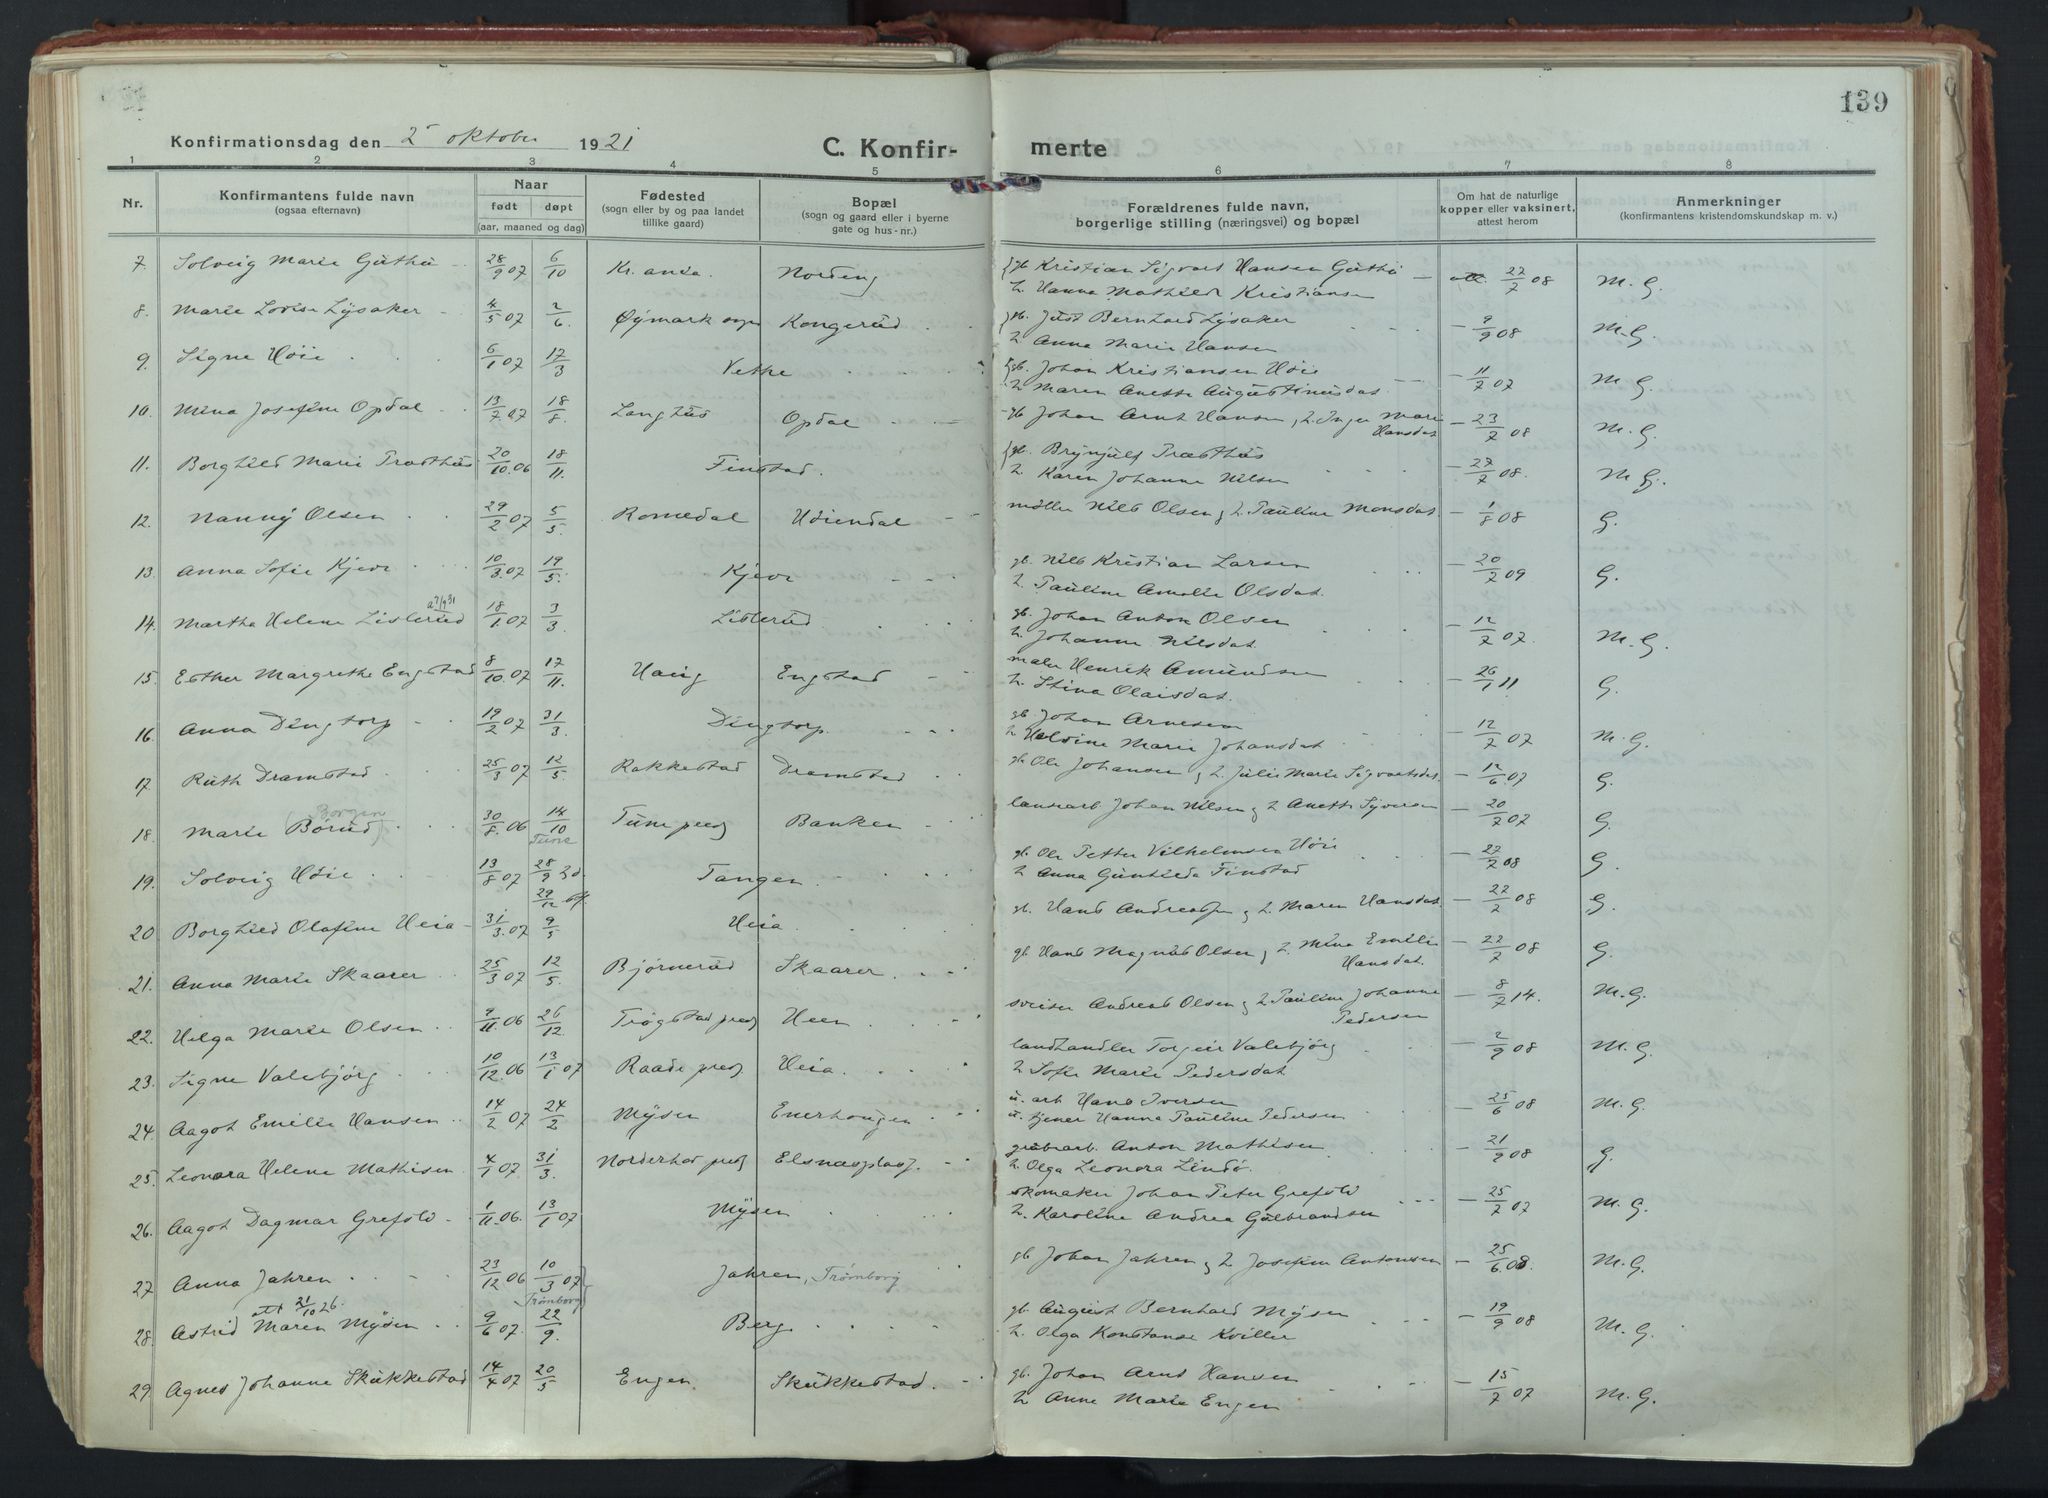 139
Konfirmationsdag den 2 oktober 1921
C. Konfir- merte
1 2 3 4 5 6 7 8
Nr. Konfirmantens fulde navn (ogsaa efternavn) Naar født døpt (aar, maaned og dag) Fødested (sogn eller by og paa landet tillike gaard) Bopæl (sogn og gaard eller i byerne gate og hus-nr.) Forældrenes fulde navn, borgerlige stilling (næringsvei) og bopæl Om hat de naturlige kopper eller vaksinert, attest herom Anmerkninger (konfirmantens kristendomskundskap m. v.)
7. Solveig Marie Guthu 28/9 07 6/10 Kr.ania. Nordeng gb Kristian Sigvart Hansen Guthu 22/7 08 M.G.
h. Hanna Mathilde Kristiansen
8. Marie Lovise Lysaker 4/5 07 2/6. Øymark sogn Kongerud gb. Just Bernhard Lysaker 9/9 08 M.G.
h. Anna Marie Hansen
9. Signe Høie 6/1 07 17/3 Vethe gb. Johan Kristiansen Høie 11/7 07 M.G.
h. Maren Anette Augustinusdat.
10. Mina Josefine Opdal 13/7 07 18/8. Langhus Opdal gb Johan Arnt Hansen, h. Inger Marie Hansdat 23/7 08 M.G.
11. Borghild Marie Træthus 20/10.06 18/11. Finstad. gb. Brynjulf Træthus 27/7 08. M.G.
h. Karen Johanne Nilsen
12. Nanny Olsen 29/2 07 5/5. Romedal Høiendal møller Nils Olsen g h. Pauline Monsdat. 1/8 08 G.
13. Anna Sofie Kjeve 10/3.07 19/5. Kjeve gb. Nils Kristian Larsen 20/7 09 G.
h. Pauline Amalie Olsdat.
14. Martha Helene Lislerud 18/1.07 3/3. Lislerud gb. Johan Anton Olsen 12/7 07. M.G.
h. Johanne Nilsdat.
15. Esther Margrethe Engstad 8/10.07 17/11. Haug Engstad maler Henrik Amundsen 26/1 11 G.
h. Stina Olaisdat.
16. Anna Dingtorp 19/2 07 31/3. Dingtorp. gb. Johan Arnesen 12/7 07 M.G.
h Helvine Marie Johansdat
17. Ruth Dramstad 25/3 07 12/5. Rakkestad Dramstad gb. Ole Johansen g h. Julie Marie Sigvartsdat. 12/6.07 G.
18. Marie Børud (Borgen) 30/8.06 14/10 Tune Tune pregj Banken Johan Nilsen g h Anette Syversen 20/7 07 G.
19. Solveig Høie 13/8 07 28/9 29/12 Tangen gb. Ole Petter Vilhelmsen Høie 27/7 08 G.
h Anna Gunhilda Finstad
20 Borghild Olafine Heia 31/3.07 9/5 Heia gb. Hans Andreassen g h. Maren Hansdat. 22/2 08 G.
21. Anna Marie Skaarer 25/3 07 12/5. Bjørnerud Skaarer gb Hans Magnus Olsen g h. Mina Emilie Hansdat. 22/7 08 G.
22. Helga Marie Olsen 9/11.06 26/12. Trøgstad pregj Heen sveiser Andreas Olsen g h Pauline Johanne Pedersen 8/7 14. M.G.
23. Signe Valebjørg 10/12.06 13/1 07 Raade pregj Heia landhandler Torgeir Valebjørg 2/9 08 M.G.
h Sofie Marie Pedersdat
24. Aagot Emilie Hansen 14/2 07 24/2 Mysen Enerhaugen u. arb Hans Iversen 25/6 08 M.G.
u. tjener Hanna Pauline Pedersen
25. Leonora Helene Mathisen 4/1 07. 31/3. Norderhov pregj Elsnæsplass. grubearb. Anton Mathisen 21/2 08 G.
h. Olga Leonora Lindø.
26. Aagot Dagmar Grefsld 1/11 06. 13/1 07 Mysen skomaker Johan Peter Grefsld 25/7 07 M.G.
h. Karoline Andrea Gulbrandsen
27 Anna Jahren 23/12 06 10/3 07 Trømborg Jahren, Trømborg gb Johan Jahren g h Josefine Antonsen 25/6.08. M.G.
att 21/10 26.
28. Astrid Maren Mysen 9/6 07. 22/9. Berg gb. August Bernhard Mysen 19/9 08 M.G.
h. Olga Konstanse Kviller
29. Agnes Johanne Skukkestad 14/4 07 20/5 Engen. Skukkestad. gb. Johan Arnt Hansen 15/7 07 M.G.
h Anne Marie Engen